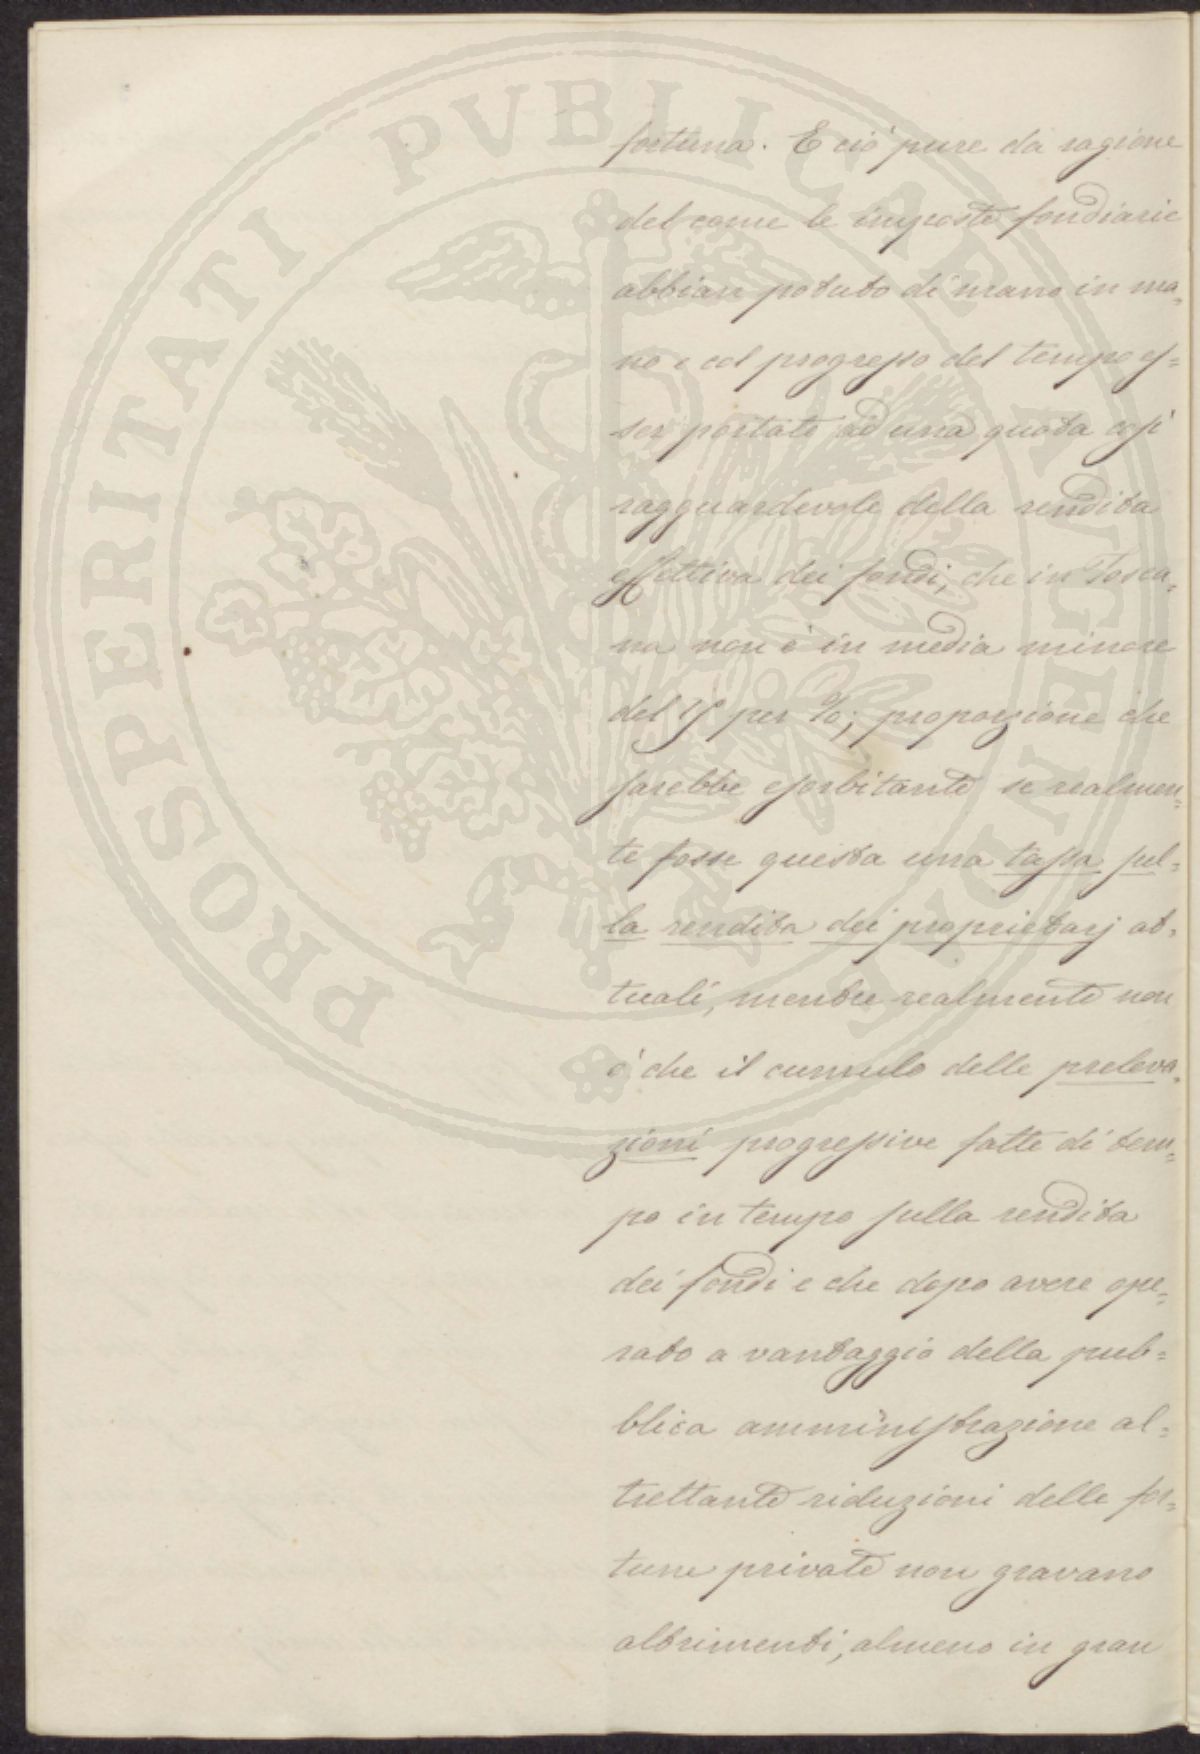 fortuna. E ciò pure dà ragione
del come le imposte fondiarie
abbian potuto di mano in ma=
no e col progresso del tempo es=
ser portate ad una quota così
ragguardevole della rendita
effettiva dei fondi, che in Tosca=
na non è in media minore
del per %; proporzione che
sarebbe esorbitante se realmen=
te fosse questa una tassa sul=
la rendita dei proprietarj at=
tuali, mentre realmente non
è che il cumulo delle preleva=
zioni progressive fatte di tem=
po in tempo sulla rendita
dei fondi e che dopo avere ope=
rato a vantaggio della pub=
blica amministrazione al=
trettante riduzioni delle for=
tune private non gravano
altrimenti, almeno in gran
PROSPERITATI PVBLICAE AVGENDAE